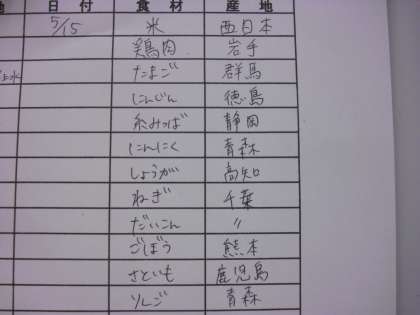 日付 食材 産地
5/15 米 西日本
鶏肉 岩手
たまご 群馬
にんじん 徳島
糸みつば 静岡
にんにく 青森
しょうが 高知
ねぎ 千葉
だいこん 〃
ごぼう 熊本
さといも 鹿児島
りんご 青森